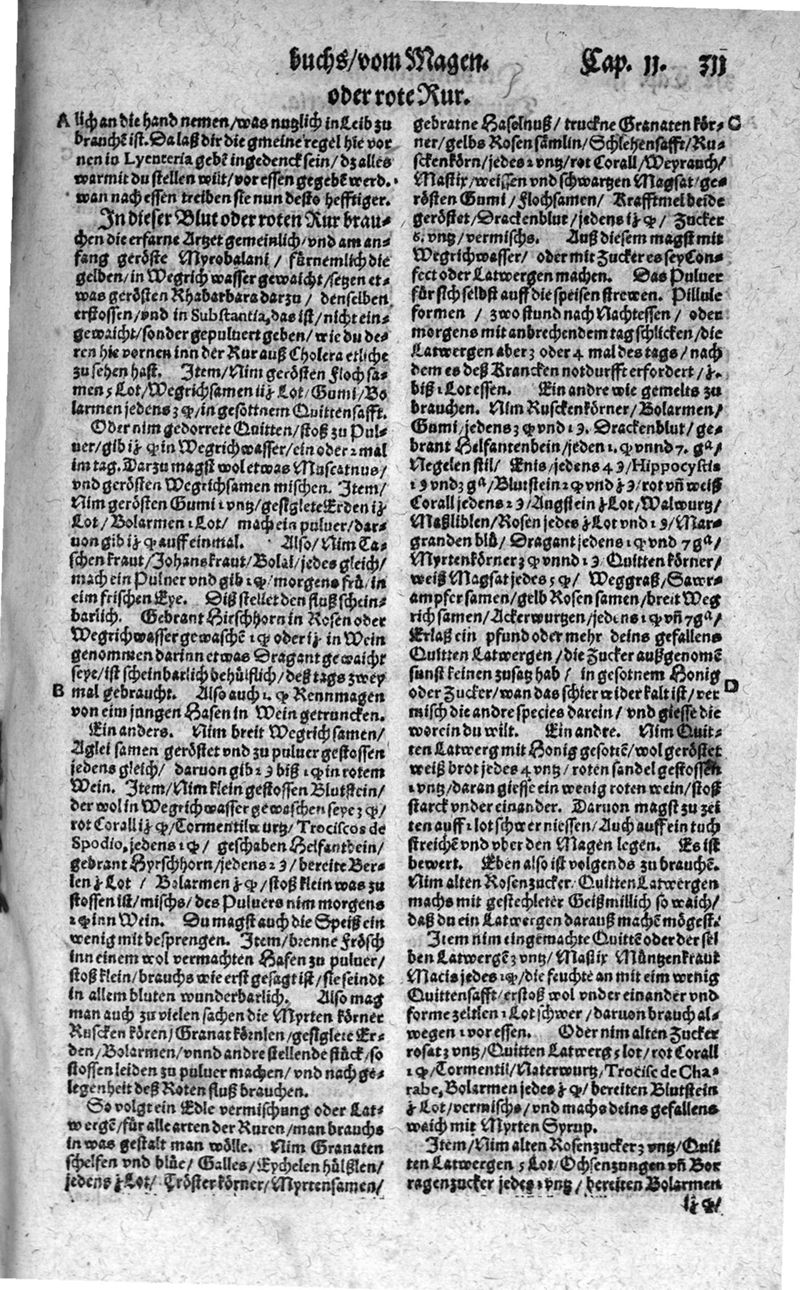 buchs/vom Magen. Cap. 11. 311
oder rote Rur.
A lich an die hand nemen/was nutzlich in Leib zu
brauchẽ ist. Da laß dir die gmeine regel hie vor
nen in Lyenteria gebẽ ingedenck sein/dz alles
warm it du stellen wilt/vor essen gegebẽ werd.
wan nach essen treiben sie nun desto hefftiger.
In dieser Blut oder roten Rur brau-
chen die erfarne Artzet gemeinlich/vnd am an-
fang geröste Myrobalani/ fürnemlich die
gelben/in Wegrich wasser gewaicht/setzen et-
was gerösten Rhabarbara darzu/ denselben
erstossen/vnd in Substantia,das ist/nicht ein-
gewaicht/sonder gepuluert geben/wie du de-
ren hie vornen inn der Rur auß Cholera etliche
zu sehen hast. Item/Nim gerösten Floch sa-
men 5 Lot/Wegrichsamen iiʒ Lot/Gumi/Bo
larmen jedens 3 ꝗ/in gesottnem Quittensafft.
Oder nim gedorrete Quitten/stoß zu Pul-
uer/gib iʒ ꝗ in Wegrichwasser/ein oder 2 mal
im tag. Darzu magst wol etwas Muscatnus/
vnd gerösten Wegrichsamen mischen. Item/
Nim gerösten Gumi 1 vntz/gestglete Erden iʒ
Lot/Bolarmen 1 Lot/ mach ein puluer/dar-
uon gib iʒ ꝗ auff einmal. Also/Nim Ta-
schen kraut/Johanskraut/Bolai/jedes gleich/
mach ein Puluer vnd gib 1 ꝗ/morgens frů/in
eim frischen Eye. Diß stellet den fluß schein-
barlich. Gebrant Hirschhorn in Rosen oder
Wegrichwasser gewaschẽ 1 ꝗ oder iʒ in Wein
genommen darinn etwas Dragant gewaicht
seye/ist scheinbarlich behülflich/deß tags zwey
B mal gebraucht. Also auch 1. ꝗ Rennmagen
von eim jungen Hasen in Wein getruncken.
Ein anders. Nim breit Wegrich samen/
Aglei samen geröstet vnd zu puluer gestossen
jedens gleich/ daruon gib 2 ℈ biß 1 ꝗ in rotem
Wein. Item/Nim klein gestossen Blutstein/
der wol in Wegrichwasser gewaschen seye 3 ꝗ/
rot Corall iʒ ꝗ/Tormentilwurtz/Trociscos de
Spodio,jedens 1 ꝗ/ geschaben Helfantbein/
gebrant Hyrschhorn/jedens 2 ℈/bereite Ber-
len ʒ Lot/ Bolarmen ʒ ꝗ/stoß klein was zu
stossen ist/mischs/des Puluers nim morgens
1 ꝗ inn Wein. Du magst auch die Speiß ein
wenig mit besprengen. Item/brenne Frösch
inn einem wol vermachten Hafen zu puluer/
stoß klein/brauchs wie erst gesagt ist/sie seindt
in allem bluten wunderbarlich. Also mag
man auch zu vielen sachen die Myrten körner
Ruscken kören/Granat körnlen/gestglete Er-
den/Bolarmen/vnnd andre stellende stück/so
stossen leiden zu puluer machen/vnd nach ge-
legenheit deß Roten fluß brauchen.
So volgt ein Edle vermischung oder Lat-
wergẽ/für alle arten der Ruren/man brauchs
in was gestalt man wölle. Nim Granaten
schelfen vnd blüe/ Galles/Eychelen hülßlen/
jedens ʒ Lot/ Tröster körner/Myrtensamen/
gebratne Haselnuß/ truckne Granaten kör- C
ner/gelbs Rosen sämlin/Schlehensafft/Ru-
sckenkörn/jedes 1 vntz/rot Corall/Weyrauch/
Mastix/weissen vnd schwartzen Magsat/ge-
rösten Gumi/ Flochsamen/ Krafftmel beide
geröstet/Drackenblut/jedens iʒ ꝗ/ Zucker
6. vntz/vermischs. Auß diesem magst mit
Wegrichwasser/ oder mit Zucker es sey Con-
fect oder Latwergen machen. Das Puluer
für sich selbst auff die speisen strewen. Pillule
formen / zwo stund nach Nachtessen/ oder
morgens mit anbrechendem tag schlicken/die
Latwergen aber 3 oder 4 mal des tags/ nach
dem es deß Krancken notdurfft erfordert/ʒ.
biß 1 Lot essen. Ein andre wie gemelts zu
brauchen. Nim Rusckenkörner/Bolarmen/
Gumi/jedens 3 ꝗ vnd 1 ℈. Drackenblut/ge-
brant Helfantenbein/jeden 1. ꝗ vnnd 7. gᵃ/
Negelen stil/ Enis/jedens 4 ℈/Hippocystis
1 ℈ vnd 2 gᵃ/Blutstein 2 ꝗ vnd ʒ ℈/rot vñ weiß
Corall jedens 2 ℈/Augstein ʒ Lot/Walwurtz/
Maßliblen/Rosen jedes ʒ Lot vnd 1 ℈/Mar-
granden blů/ Dragant jedens 1 ꝗ vnd 7 gᵃ/
Myrtenkörner 3 ꝗ vnnd 1 ℈ Quitten körner/
weiß Magsat jedes 5 ꝗ/ Weggraß/Sawr-
ampfer samen/gelb Rosen samen/breit Weg
rich samen/Ackerwurtzen/jedens 1 ꝗ vñ 7 gᵃ/
Erlaß ein pfund oder mehr deins gefallens
Quitten Latwergen/die Zucker außgenomẽ
sunst keinen zusatz hab/ in gesotnem Honig
oder Zucker/wan das schier wider kalt ist/ver D
misch die andre species darein/ vnd giesse die
worein du wilt. Ein andre. Nim Quit-
ten Latwerg mit Honig gesotẽ/wol geröstet
weiß brot jedes 4 vntz/roten sandel gestossen
1 vntz/daran giesse ein wenig roten wein/stoß
starck vnder einander. Daruon magst zu zei
ten auff 1 lot schwer niessen/Auch auff ein tuch
streichẽ vnd vber den Magen legen. Es ist
bewert. Eben also ist volgends zu brauchẽ.
Nim alten Rosenzucker/Quitten Latwergen
machs mit gestechleter Geißmilch so waich/
daß du ein Latwergen darauß machẽ mögest.
Item nim eingemachte Quittẽ oder der sel
ben Latwergẽ 3 vntz/ Mastix Müntzenkraut
Macis jedes 1 ꝗ/die feuchte an mit eim wenig
Quittensafft/erstoß wol vnder einander vnd
forme zeltlen 1 Lot schwer/daruon brauch al-
wegen 1 vor essen. Oder nim alten Zucker
rosat 3 vntz/Quitten Latwerg 5 lot/rot Corall
1 ꝗ/Tormentil/Naterwurtz/Trocisc de Cha-
rabe,Bolarmen jedes ʒ ꝗ/bereiten Blutstein
ʒ Lot/vermischs/vnd machs deins gefallens
waich mit Myrten Syrup.
Item/Nim alten Rosenzucker 3 vntz/Quit
ten Latwergen 5 Lot/Ochsenzungen vñ Bor
ragenzucker jedes 1 vntz/bereiten Bolarmen
iʒ ꝗ/